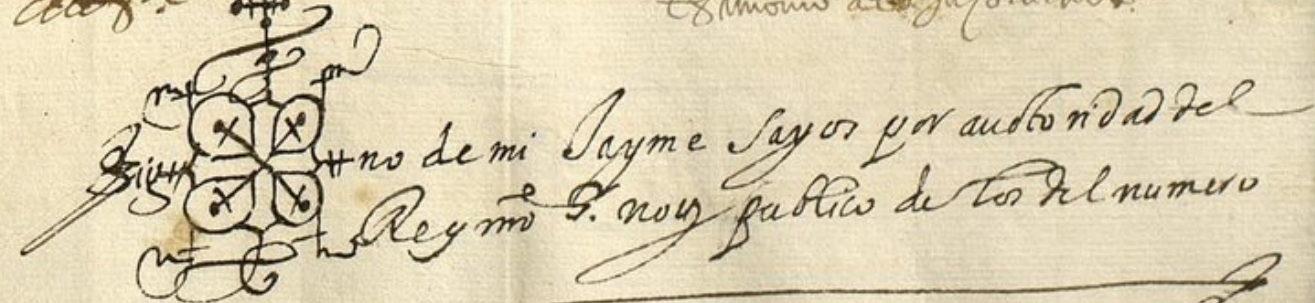 Sig no de mi Jayme Sayos por auctoridad del
Rey mō S. noty publico de los del numero